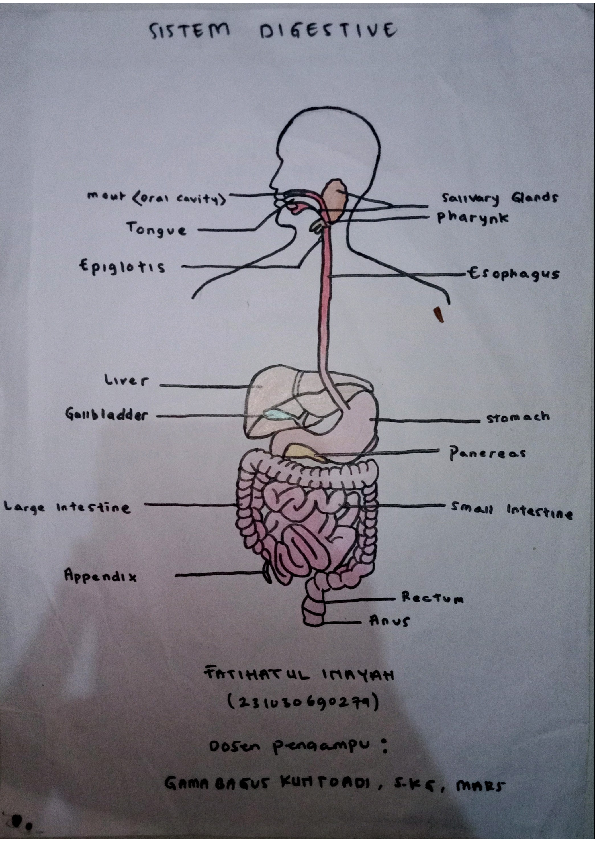 SISTEM DIGESTIVE
mout (oral cavity)
Salivary Glands
Pharynk
Tongue
Epiglotis
Esophagus
Liver
Gallbladder
Stomach
Pancreas
Large Intestine
Small Intestine
Appendix
Rectum
Anus
FATIHATUL INAYAH
(231030690279)
Dosen pengampu :
GAMA BAGUS KUNTOADI, S.KG, MARS